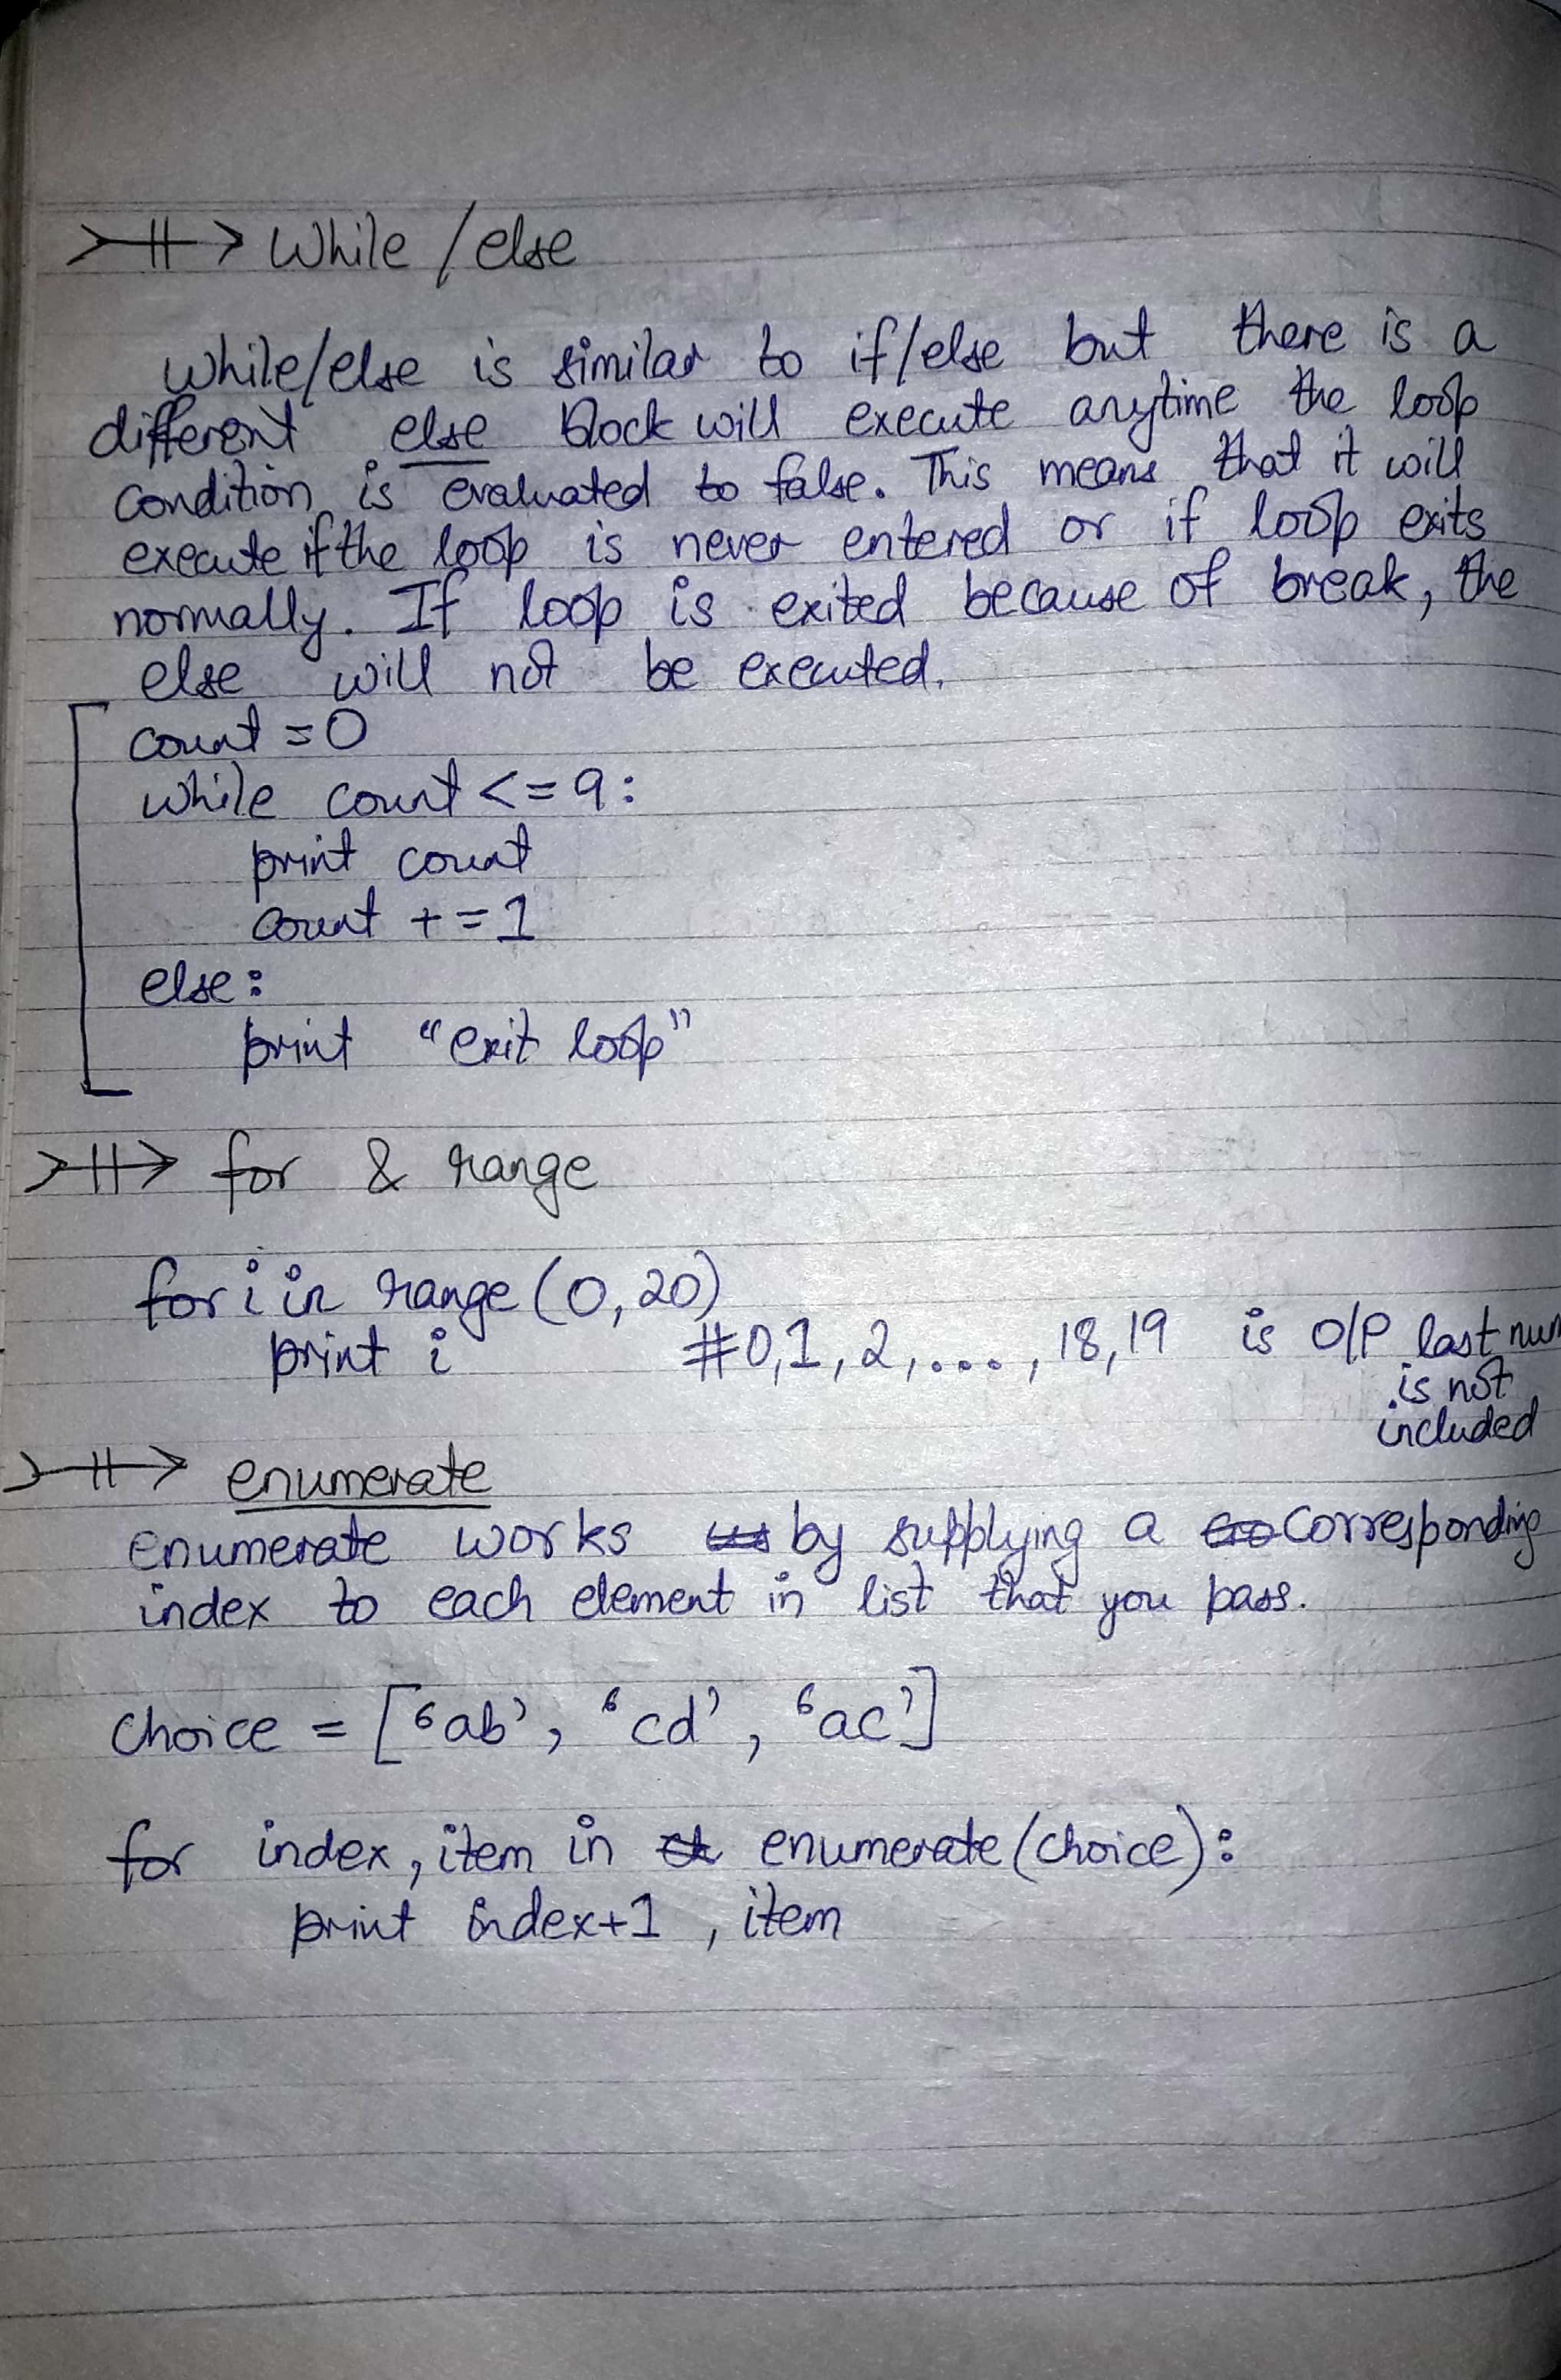 While / else
While/else is similar to if/else but there is a
different else block will execute anytime the loop
condition is evaluated to false. This means that it will
execute if the loop is never entered or if loop exits
normally. If loop is exited because of break, the
else will not be executed.
count = 0
while count <= 9:
print count
count += 1
else:
print "exit loop"
for & range
for i in range (0, 20)
print i #0,1,2,...,18,19 is O/P last num
is not
included
enumerate
enumerate works by supplying a Corresponding
index to each element in list that you pass.
choice = ['ab', 'cd', 'ac']
for index, item in enumerate (choice):
print index+1 , item